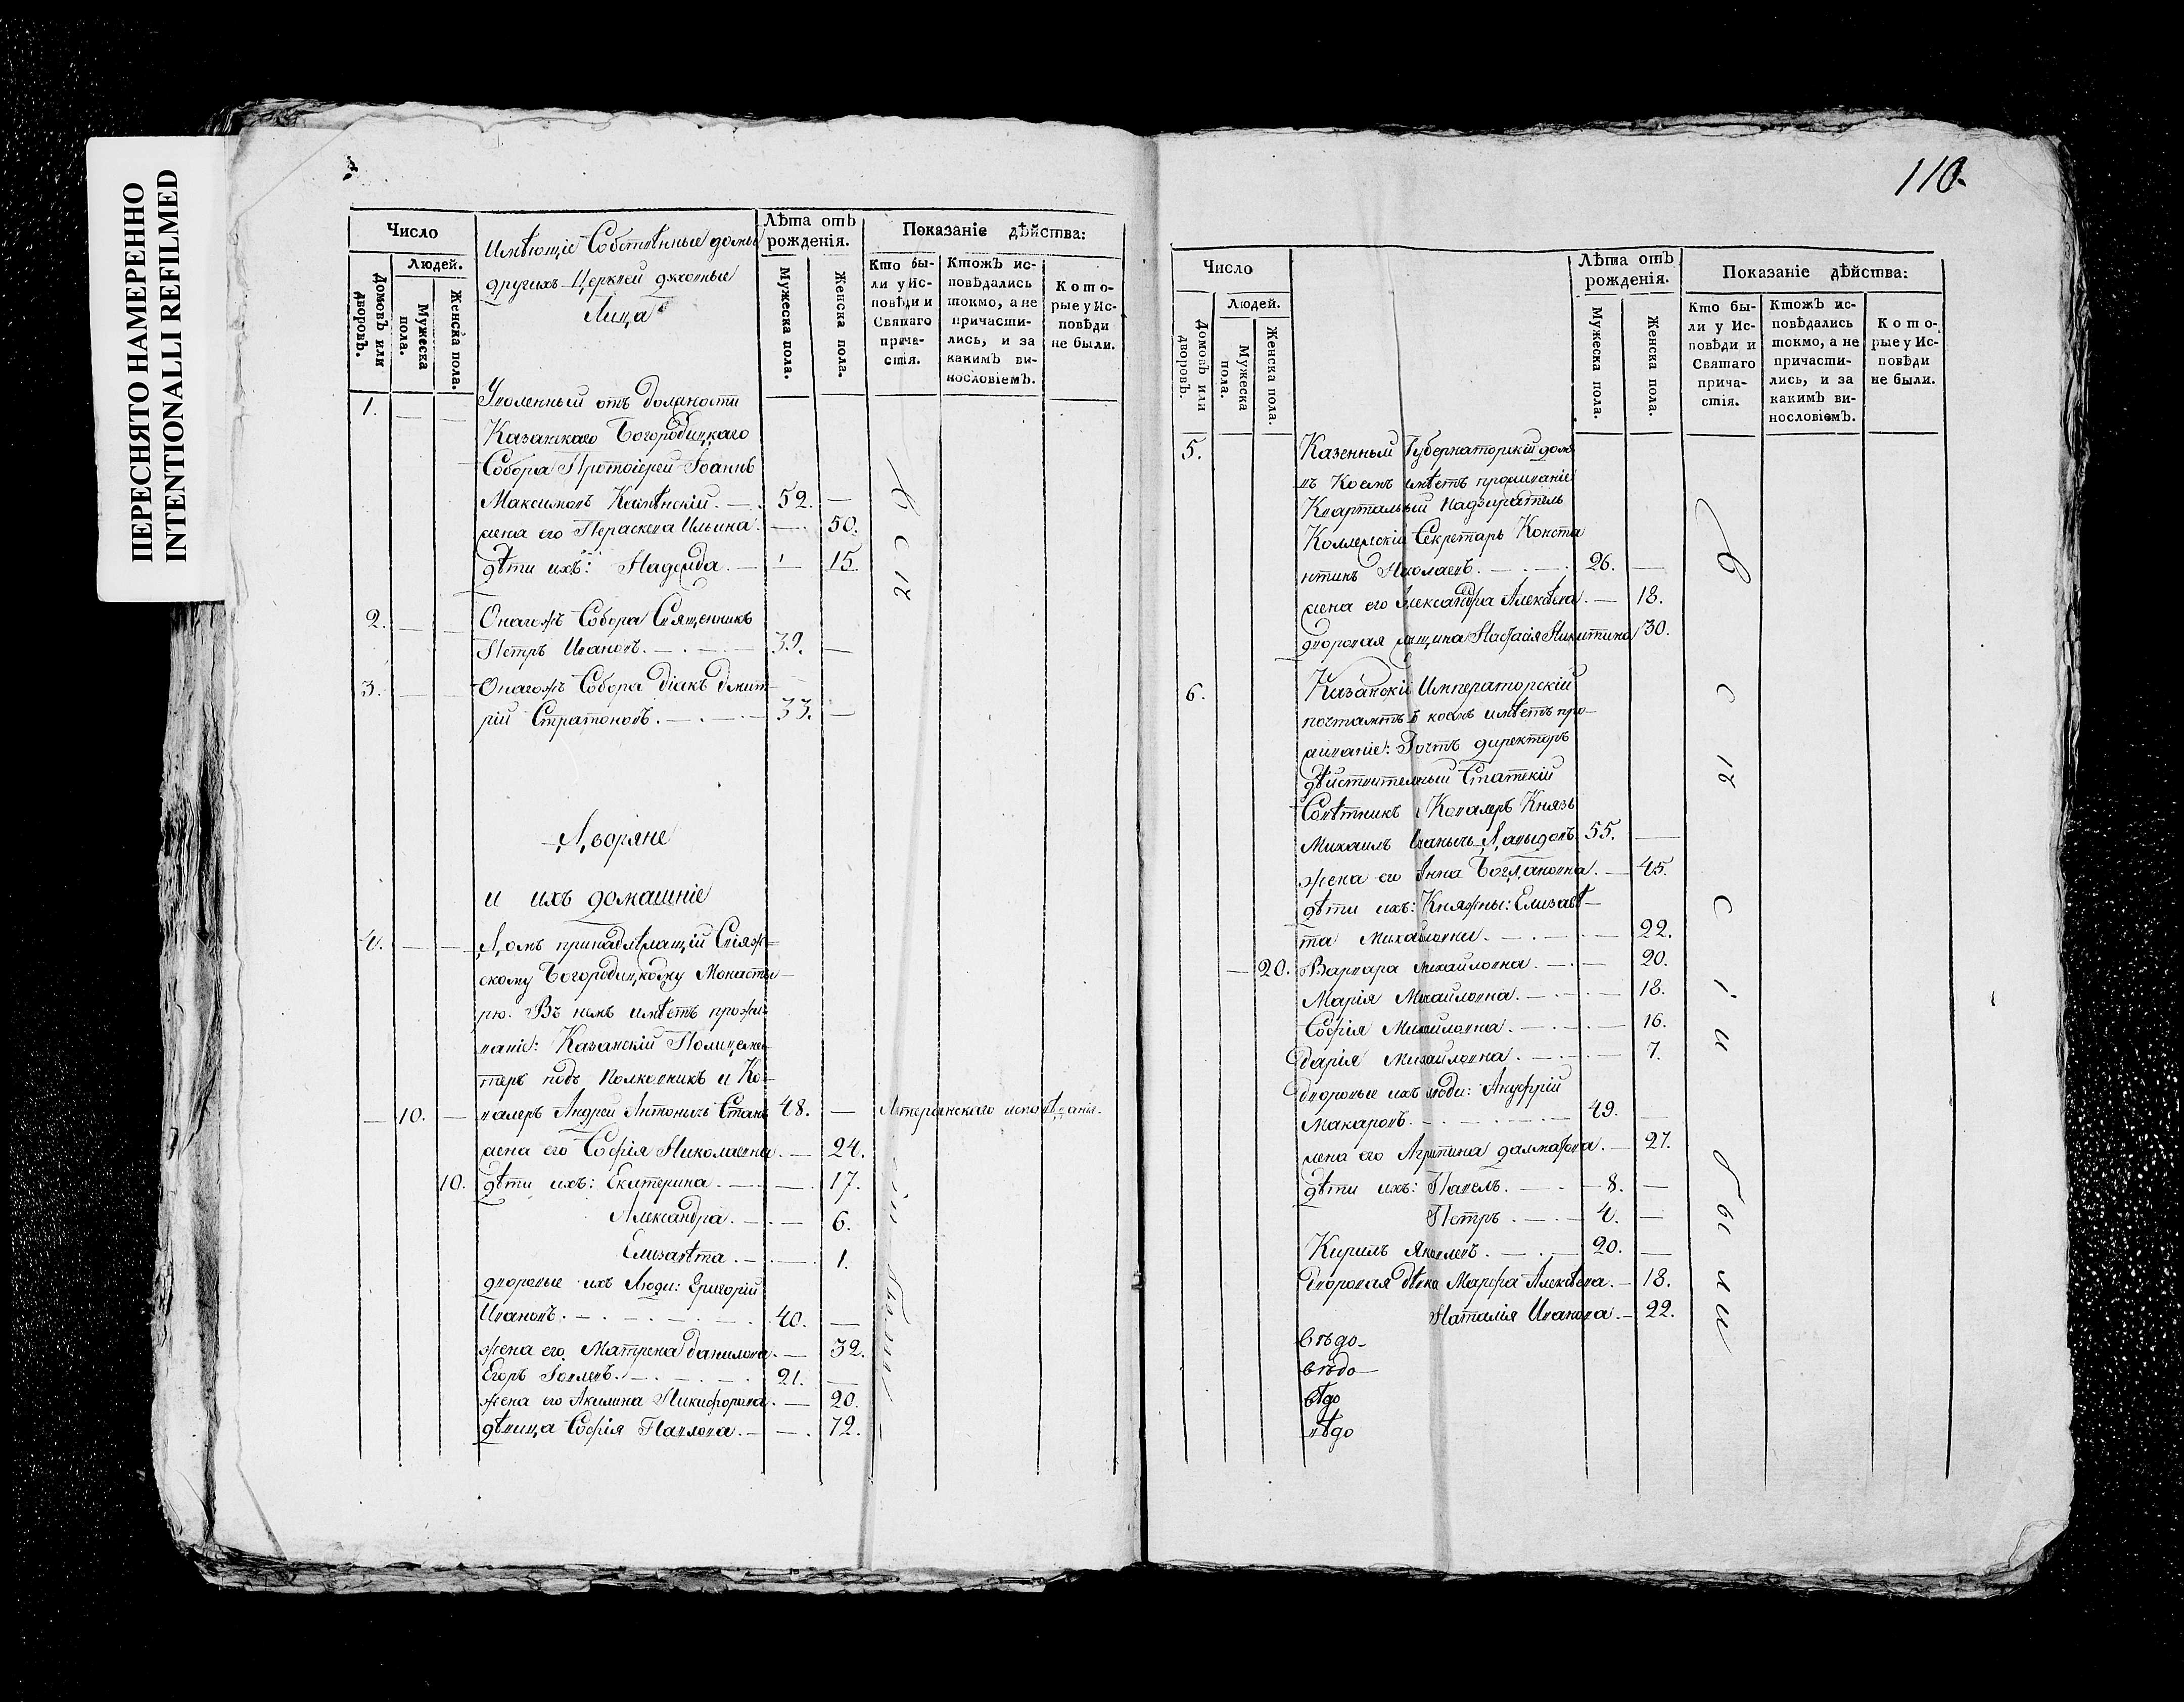 ПЕРЕСНЯТО НАМЕРЕННО
INTENTIONALLI REFILMED
Число
Людей.
Домовъ или дворовъ.
Мужеска пола.
Женска пола.
Имѣющіе Собственные домы
другихъ Церквей духовные
Лица
Лѣта отъ рожденія.
Мужеска пола.
Женска пола.
Показаніе дѣйства:
Кто бы-
ли у Ис-
повѣди и
Святаго
прича-
стія.
Ктожъ ис-
повѣдались
токмо, а не
причасти-
лись, и за
какимъ ви-
нословіемъ.
Кото-
рые у Ис-
повѣди
не были.
1. — — Уволенный отъ должности
Казанскаго Богородицкаго
Собора Протоіерей Іоаннъ
Максимовъ — 52. —
жена его Параскева Ильина. — 50.
дѣти ихъ: Надежда. — 15.
2. — — Онагожъ Собора Священникъ
Петръ Ивановъ. — . — 39. —
3. — — Онагожъ Собора діакъ Дмит-
рій Стратоновъ. — . — 33. —
Дворяне
и ихъ домашніе
4. — — Домъ принадлѣжащій Свіяж-
скому Богородицкому Монасты-
рю. Въ немъ имѣетъ прожи-
ваніе: Казанскій Полицеймей-
стеръ подъ Полковникъ и Ка-
— 10. — валеръ Андрей Антоничь 48. — Лютеранскаго исповѣданія.
жена его Софія Николаевна. — 24.
10. дѣти ихъ: Екатерина. — . — 17.
Александра. — . — 6.
Елизавѣта. — . — 1.
дворовые ихъ Люди: Григорій
Ивановъ. — . — . — 40. —
жена его Матрена Данилова. — 32.
Егоръ Іовлевъ. — . — 21. —
жена его Акилина Никифорова. — 20.
дѣвица Софія Павлова. — . — 72.
110.
Число
Людей.
Домовъ или дворовъ.
Мужеска пола.
Женска пола.
Лѣта отъ рожденія.
Мужеска пола.
Женска пола.
Показаніе дѣйства:
Кто бы-
ли у Ис-
повѣди и
Святаго
прича-
стія.
Ктожъ ис-
повѣдались
токмо, а не
причасти-
лись, и за
какимъ ви-
нословіемъ.
Кото-
рые у Ис-
повѣди
не были.
5. Казенный Губернаторскій домъ
въ Коемъ имѣетъ проживаніе
Квартальный Надзиратель
Коллежскій Секретарь Конста
нтинъ Николаевъ. — . — 26. —
жена его Александра Алексѣева. — 18.
дворовая женщина Настасія Никитина 30.
6. Казанскій Императорскій
почтамтъ в коемъ имѣетъ про-
живаніе: Почтъ директоръ
дѣйствителный Статскій
Совѣтникъ и Кавалеръ Князь
Михаилъ Иванычь Давыдовъ 55. —
жена его Анна Богдановна. — 45.
дѣти ихъ: Княжны: Елизавѣ-
та Михайловна. — . — 22.
— 20. Варвара Михайловна. — . — 20.
Марія Михайловна. — . — 18.
Софія Михайловна. — . — 16.
Дарія Михайловна. — . — 7.
Дворовые ихъ люди: Ануфрій
Макаровъ. — . — 49. —
жена его Агрипина — 27.
дѣти ихъ: Павелъ. — . — 8. —
Петръ. — . — 4. —
Кирилъ Яковлевъ. — . — 20. —
Дворовая дѣвка Марфа Алексѣева. — 18.
Наталія Иванова. — 22.